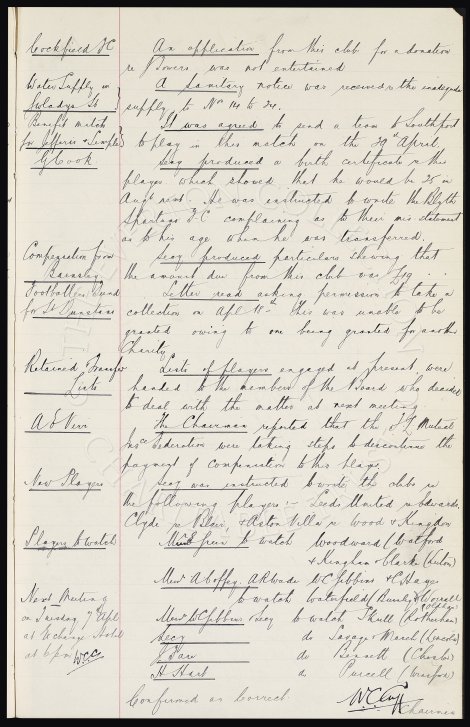 Cockfield F C
An application from this club for a donation
re Bowers was not entertained
Water Supply in
Gwladys St.
A sanitary notice was received re the inadequate
supply to Nos 14 to 24.
Benefit match
for Jefferis &
It was agreed to send a team to Southport
to play in this match on the 29th April.
G Cook
Secy produced a birth certificate re this
player which showed that he would be 25 in
Augt next. He was instructed to write the Blyth
Spartans F C complaining as to their mis statement
as to his age when he was transferred.
Compensation from
Barnsley
Secy produced particulars showing that
the amount due from this club was £19
Footballers Fund
for St Dunstans
Letter read asking permission to take a
collection on Apl 18th This was unable to be
granted owing to one being granted for another
Charity
Retained & Transfer
Lists
Lists of players engaged at present, were
handed to the members of the Board who decided
to deal with the matter at next meeting.
A E Virr
The Chairman reported that the F L Mutual
Insce Federation were taking steps to discontinue the
payment of Compensation to this player
New Players
Secy was instructed to write the clubs re
the following players :- Leeds United re Edwards,
Clyde re Blair, & Aston Villa re Wood & Kingdon
Players to watch
Mr Green to watch Woodward (Watford
& Kingham & Clarke (Luton)
Messrs A Coffey, A R Wade W C Gibbins & C Hayes
to watch Waterfield (Burnley & Worrell
Messrs W C Gibbins & Secy to watch Skull (Rotherham)
Secy do Savage & March (Lincoln)
J Fare do Bennett (Chester)
H Hart do Purcell (Winsford)
Next Meeting
on Tuesday 7th Apl
at Exchange Hotel
at 6 pm WCC
Confirmed as Correct
W C Cuff
Chairman